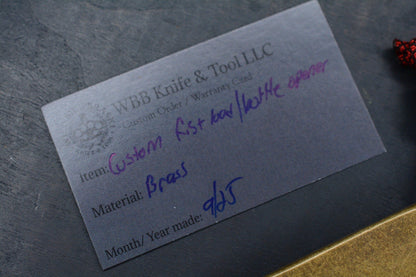 WBB Knife & Tool LLC
Custom Order / Warranty Card
Item: Custom fist load/bottle opener
Material: Brass
Month/ Year made: 9/25